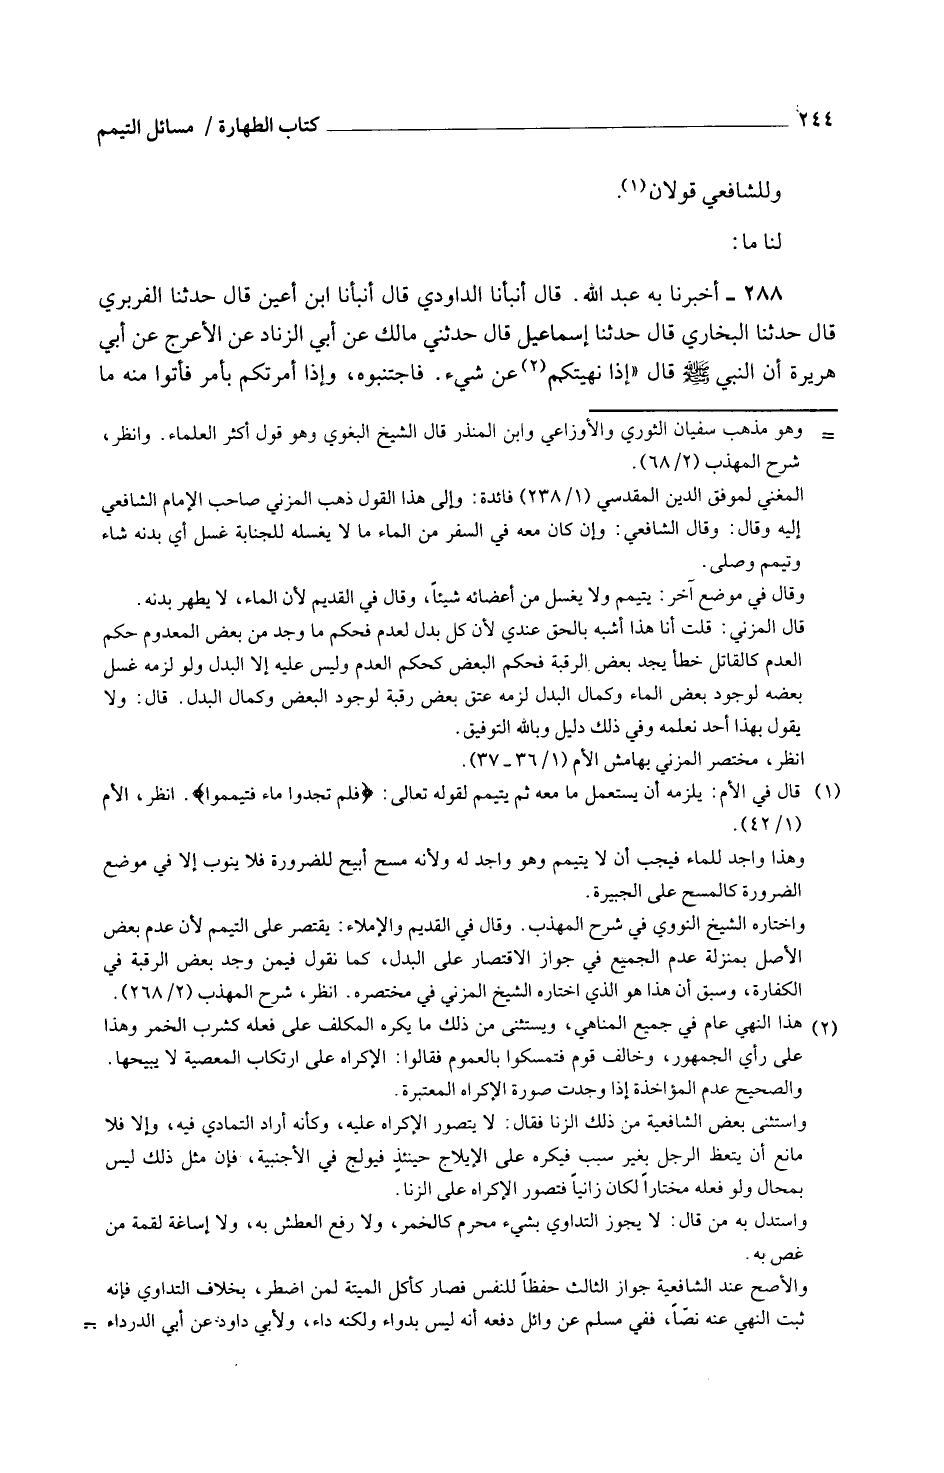 ٢٤٤ كتاب الطهارة / مسائل التيمم
وللشافعي قولان(١).
لنا ما:
٢٨٨ ـ أخبرنا به عبد الله. قال أنبأنا الداودي قال أنبأنا ابن أعين قال حدثنا الفربري
قال حدثنا البخاري قال حدثنا إسماعيل قال حدثني مالك عن أبي الزناد عن الأعرج عن أبي
هريرة أن النبي ﷺ قال «إذا نهيتكم(٢) عن شيء. فاجتنبوه، وإذا أمرتكم بأمر فأتوا منه ما
= وهو مذهب سفيان الثوري والأوزاعي وابن المنذر قال الشيخ البغوي وهو قول أكثر العلماء. وانظر،
شرح المهذب (٦٨/٢).
المغني لموفق الدين المقدسي (٢٣٨/١) فائدة: وإلى هذا القول ذهب المزني صاحب الإمام الشافعي
إليه وقال: وقال الشافعي: وإن كان معه في السفر من الماء ما لا يغسله للجنابة غسل أي بدنه شاء
وتيمم وصلى.
وقال في موضع آخر: يتيمم ولا يغسل من أعضائه شيئاً، وقال في القديم لأن الماء، لا يطهر بدنه.
قال المزني: قلت أنا هذا أشبه بالحق عندي لأن كل بدل لعدم فحكم ما وجد من بعض المعدوم حكم
العدم كالقاتل خطأ يجد بعض الرقبة فحكم البعض كحكم العدم وليس عليه إلا البدل ولو لزمه غسل
بعضه لوجود بعض الماء وكمال البدل لزمه عتق بعض رقبة لوجود البعض وكمال البدل. قال: ولا
يقول بهذا أحد نعلمه وفي ذلك دليل وبالله التوفيق.
انظر، مختصر المزني بهامش الأم (٣٦/١ ـ ٣٧).
(١) قال في الأم: يلزمه أن يستعمل ما معه ثم يتيمم لقوله تعالى: ﴿فلم تجدوا ماء فتيمموا﴾. انظر، الأم
(٤٢/١).
وهذا واجد للماء فيجب أن لا يتيمم وهو واجد له ولأنه مسح أبيح للضرورة فلا ينوب إلا في موضع
الضرورة كالمسح على الجبيرة.
واختاره الشيخ النووي في شرح المهذب. وقال في القديم والإملاء: يقتصر على التيمم لأن عدم بعض
الأصل بمنزلة عدم الجميع في جواز الاقتصار على البدل، كما نقول فيمن وجد بعض الرقبة في
الكفارة، وسبق أن هذا هو الذي اختاره الشيخ المزني في مختصره. انظر، شرح المهذب (٢٦٨/٢).
(٢) هذا النهي عام في جميع المناهي، ويستثنى من ذلك ما يكره المكلف على فعله كشرب الخمر وهذا
على رأي الجمهور، وخالف قوم فتمسكوا بالعموم فقالوا: الإكراه على ارتكاب المعصية لا يبيحها.
والصحيح عدم المؤاخذة إذا وجدت صورة الإكراه المعتبرة.
واستثنى بعض الشافعية من ذلك الزنا فقال: لا يتصور الإكراه عليه، وكأنه أراد التمادي فيه، وإلا فلا
مانع أن يتعظ الرجل بغير سبب فيكره على الإيلاج حينئذٍ فيولج في الأجنبية، فإن مثل ذلك ليس
بمحال ولو فعله مختاراً لكان زانياً فتصور الإكراه على الزنا.
واستدل به من قال: لا يجوز التداوي بشيء محرم كالخمر، ولا رفع العطش به، ولا إساغة لقمة من
غص به.
والأصح عند الشافعية جواز الثالث حفظاً للنفس فصار كأكل الميتة لمن اضطر، بخلاف التداوي فإنه
ثبت النهي عنه نصّاً، ففي مسلم عن وائل دفعه أنه ليس بدواء ولكنه داء، ولأبي داود عن أبي الدرداء =